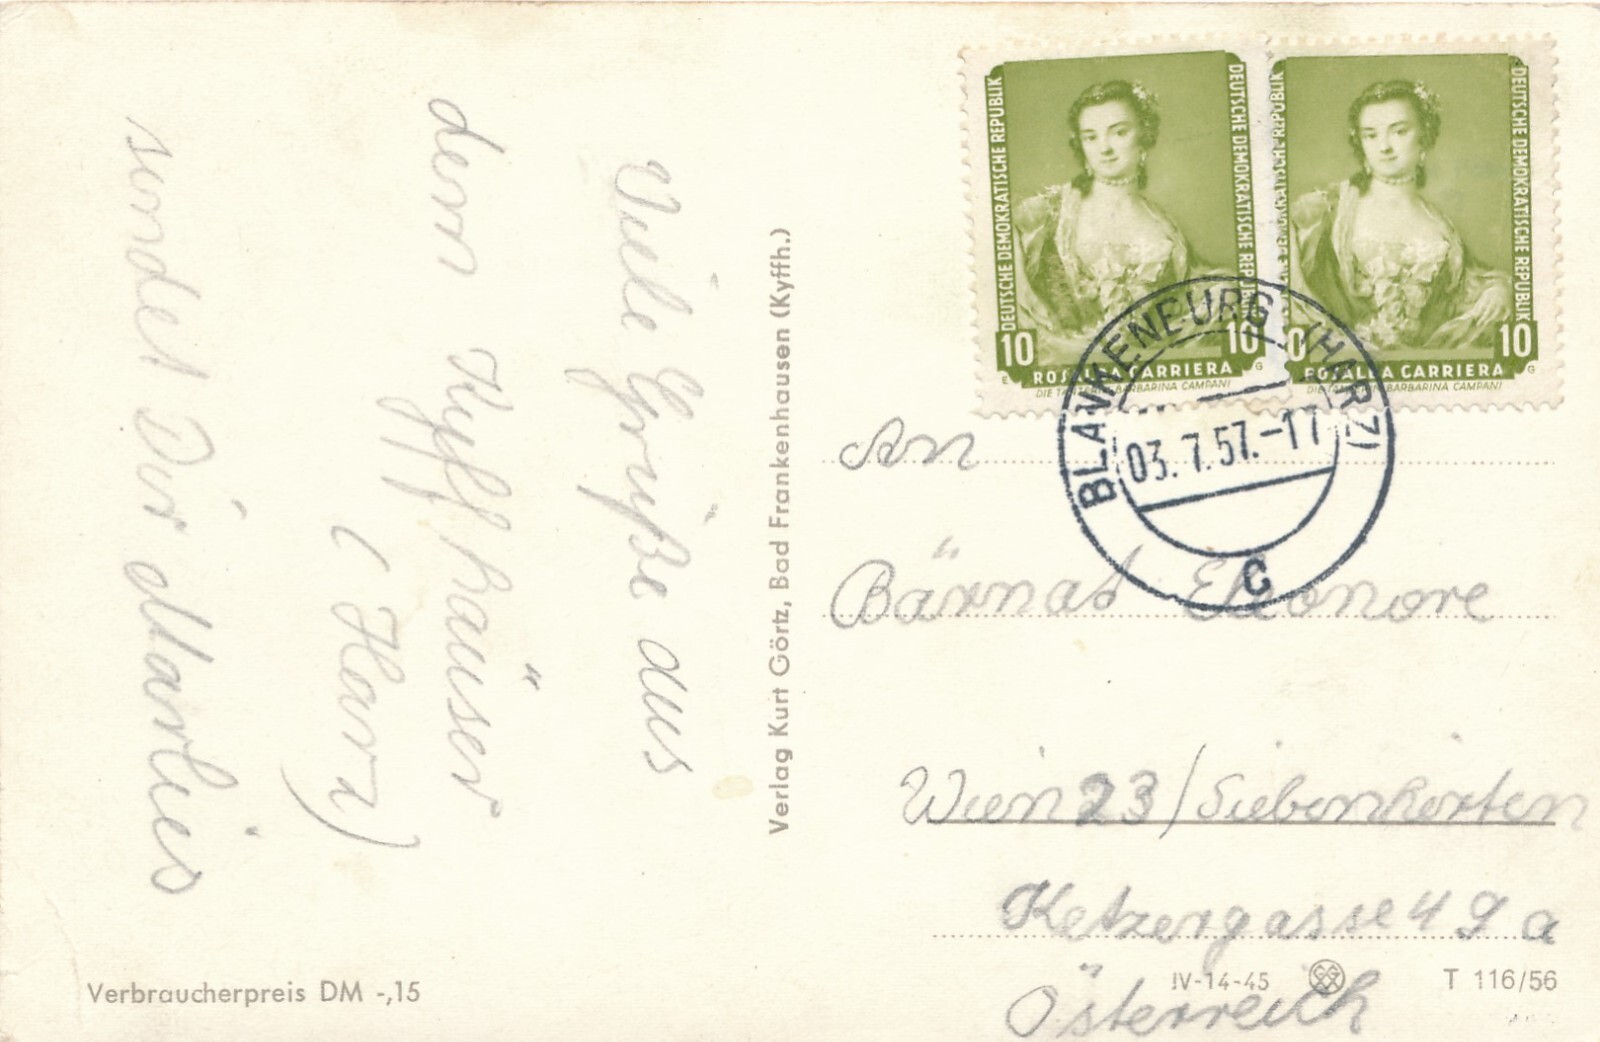 Viele Grüße aus
dem Kyffhäuser
(Harz)
sendet Dir Marlies
Verbraucherpreis DM -,15
Verlag Kurt Görtz, Bad Frankenhausen (Kyffh.)
DEUTSCHE DEMOKRATISCHE REPUBLIK
DEUTSCHE DEMOKRATISCHE REPUBLIK
10 10
ROSALBA CARRIERA
DIE TÄNZERIN BARBARINA CAMPANI
DEUTSCHE DEMOKRATISCHE REPUBLIK
DEUTSCHE DEMOKRATISCHE REPUBLIK
10 10
ROSALBA CARRIERA
DIE TÄNZERIN BARBARINA CAMPANI
BLANKENBURG (HARZ)
03.7.57.-17
c
An
Bärnat Eleonore
Wien 23/Siebenhirten
Ketzergasse 49a
Österreich
IV-14-45
T 116/56